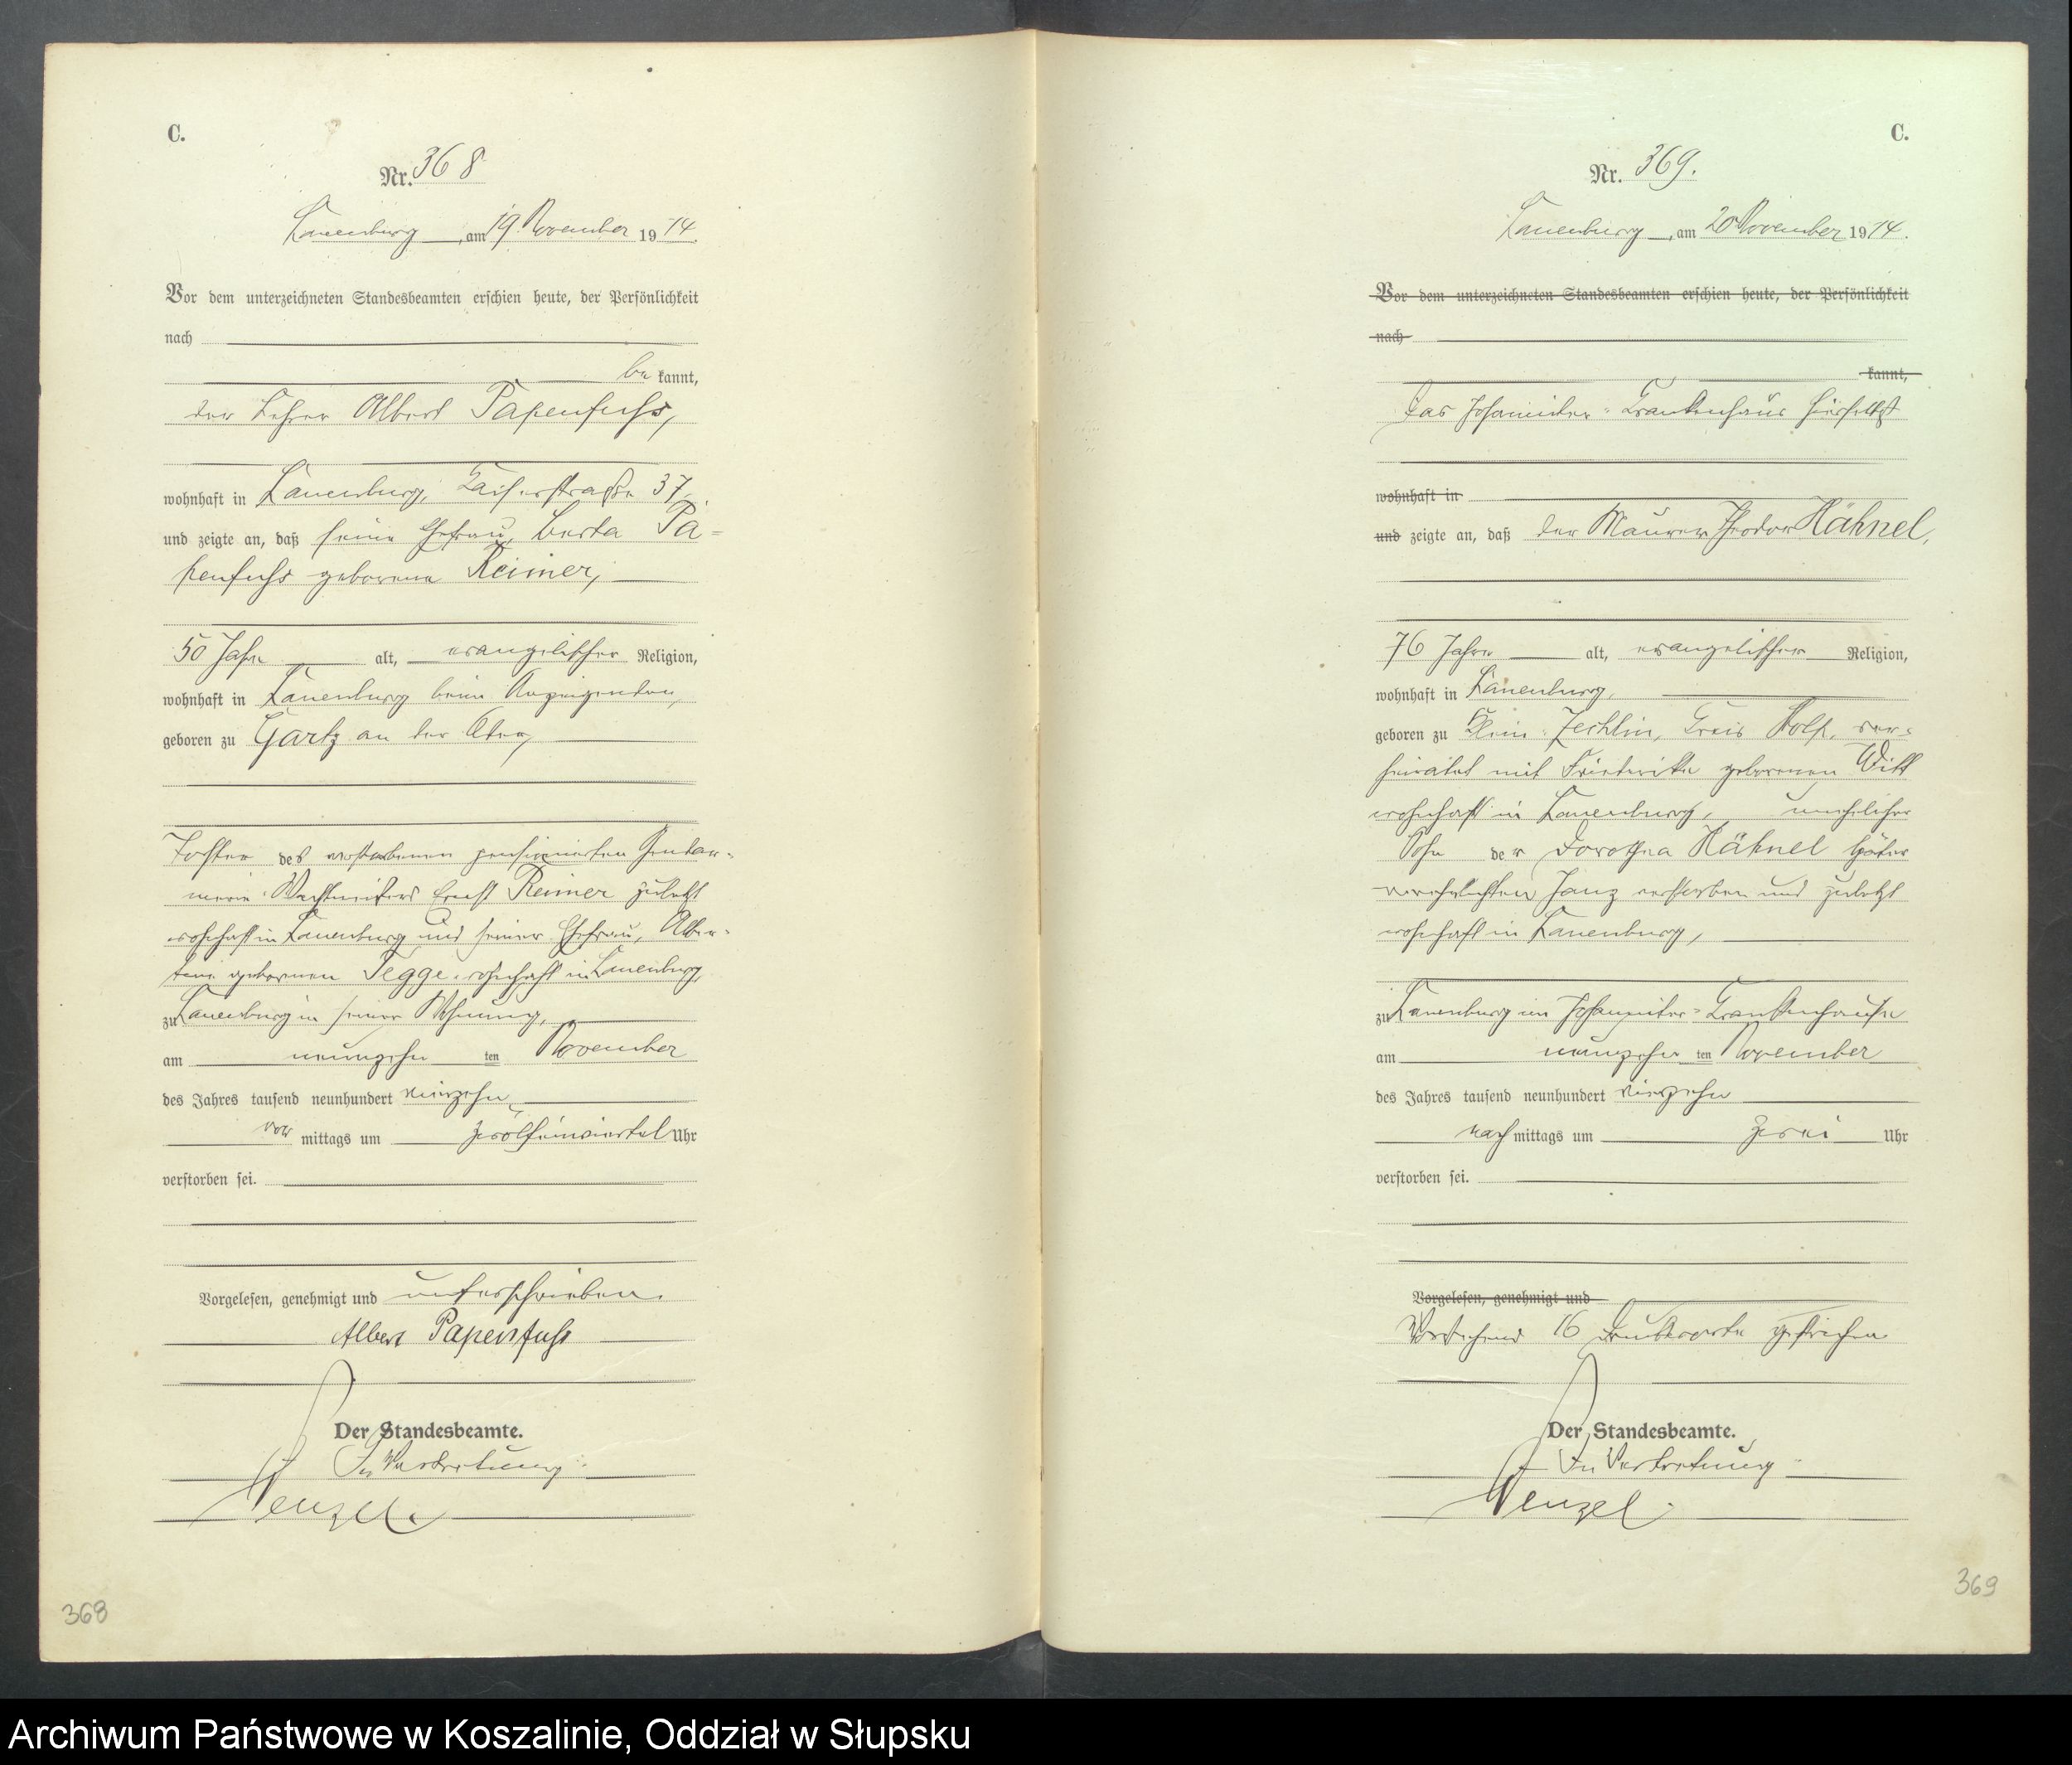 C.
Nr. 368
Lauenburg, am 19. November 1914.
Vor dem unterzeichneten Standesbeamten erschien heute, der Persönlichkeit
nach
be kannt,
der Lehrer Albert Papenfuhs,
wohnhaft in Lauenburg, Kaiserstraße 37,
und zeigte an, daß seine Ehefrau, Berta Pa=
penfuhs geborene Reimer,
50 Jahre alt, evangelischer Religion,
wohnhaft in Lauenburg beim Anzeigenden,
geboren zu Gartz an der Oder,
Tochter des verstorbenen pensionierten Gendar=
merie-Wachtmeisters Ernst Reimer zuletzt
wohnhaft in Lauenburg und seiner Ehefrau, Alber=
tine geborenen Tegge wohnhaft in Lauenburg,
zu Lauenburg in seiner Wohnung,
am neunzehn ten November
des Jahres tausend neunhundert vierzehn
vor mittags um zwölfeinviertel Uhr
verstorben sei.
Vorgelesen, genehmigt und unterschrieben.
Albert Papenfuhs
Der Standesbeamte.
In Vertretung.
Wenzel.
368
C.
Nr. 369.
Lauenburg, am 20 November 1914.
Vor dem unterzeichneten Standesbeamten erschien heute, der Persönlichkeit
nach
kannt,
Das Johanniter-Krankenhaus hierselbst
wohnhaft in
und zeigte an, daß der Maurer Theodor Hähnel,
76 Jahre alt, evangelischer Religion,
wohnhaft in Lauenburg,
geboren zu Klein-Jechlin, Kreis Stolp, ver=
heiratet mit Friederike geborenen Witt
wohnhaft in Lauenburg, unehelicher
Sohn der Dorothea Hähnel später
verehelichten Janz verstorben und zuletzt
wohnhaft in Lauenburg,
zu Lauenburg im Johanniter-Krankenhause
am neunzehn ten November
des Jahres tausend neunhundert vierzehn
nach mittags um zwei Uhr
verstorben sei.
Vorgelesen, genehmigt und
Vorstehend 16 Druckworte gestrichen
Der Standesbeamte.
In Vertretung.
Wenzel.
369
Archiwum Państwowe w Koszalinie, Oddział w Słupsku